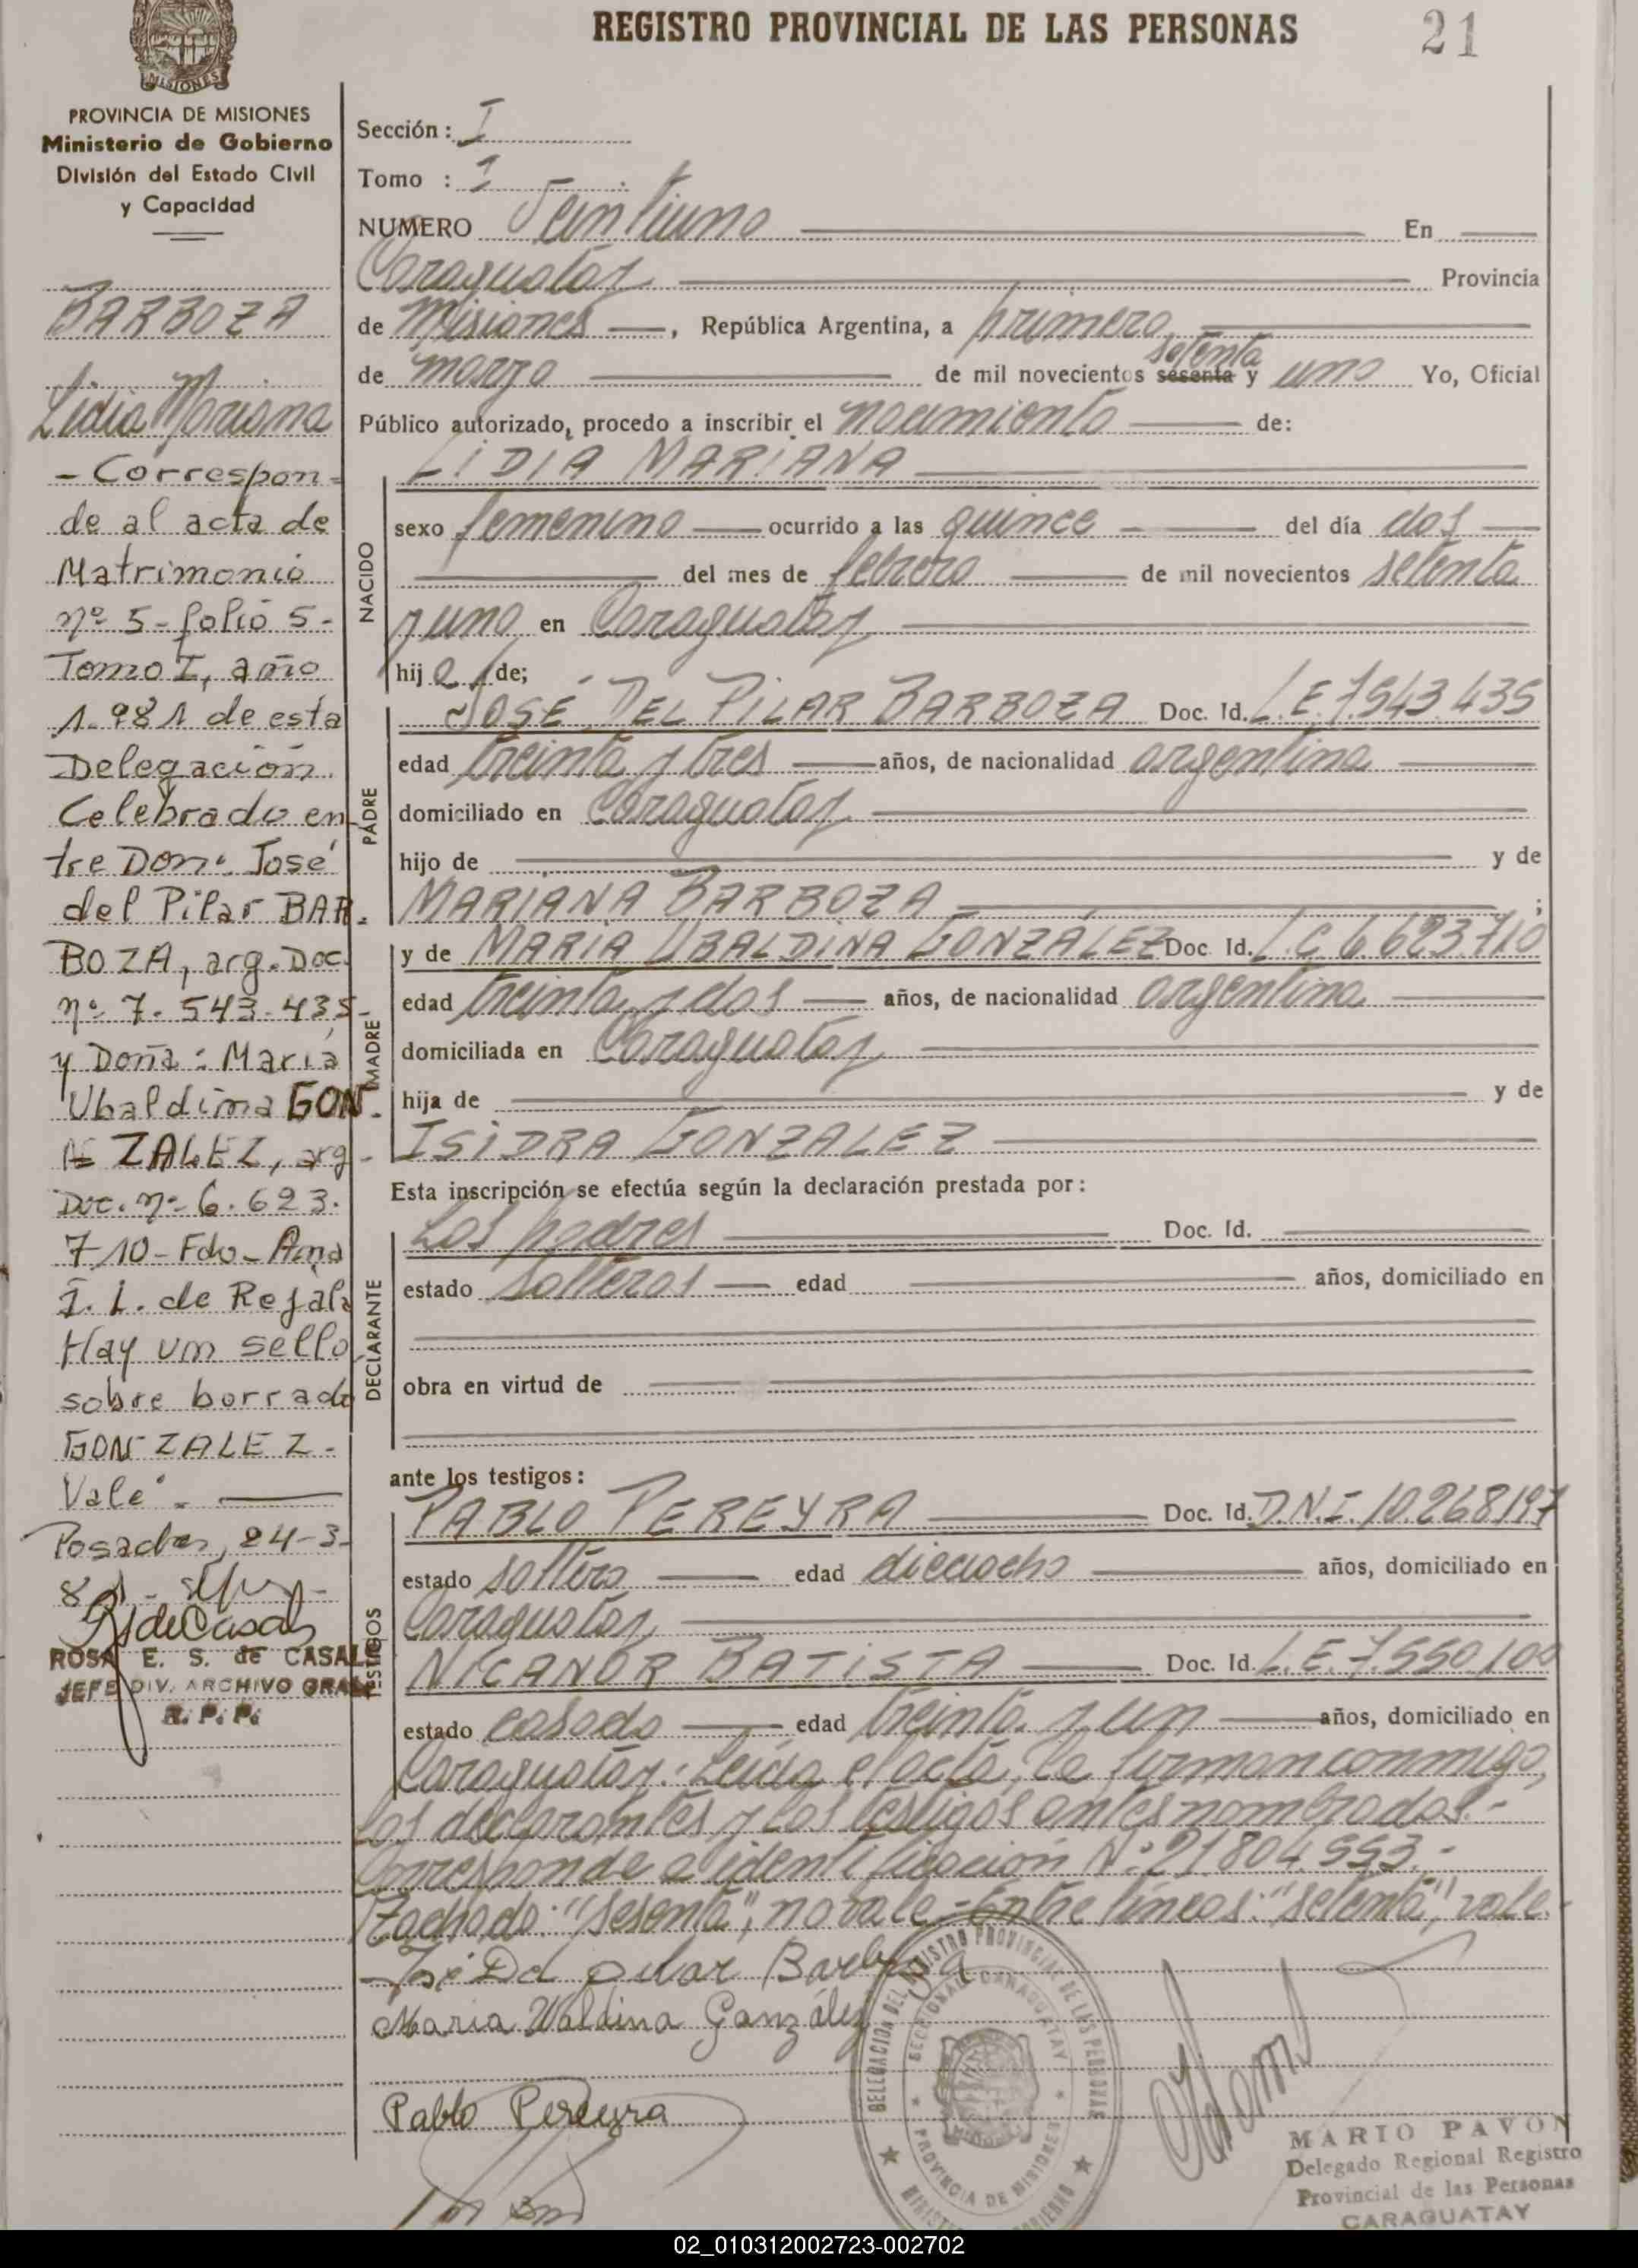 REGISTRO PROVINCIAL DE LAS PERSONAS
21
MISIONES
PROVINCIA DE MISIONES
Ministerio de Gobierno
División del Estado Civil
y Capacidad
BARBOZA
Lidia Mariana
- Correspon-
de al acta de
Matrimonio
nº 5 - folio 5 -
Tomo I, año
1.981 de esta
Delegación.
Celebrado en-
tre Don: José
del Pilar BAR-
BOZA, arg. Doc.
nº 7.543.435-
y Doña: María
Ubaldina GON-
ZALEZ, arg-
Doc. nº 6.623.
710 - Fdo - Ana
I. L. de Rejala
Hay un sello
sobre borrado
GONZALEZ -
Vale. -
Posadas, 24-3-
81 -
RdeCasals
ROSA E. S. de CASALS
JEFE DIV. ARCHIVO GRAL
R. P. P.
Sección: I
Tomo : 1
NUMERO Veintiuno En
Caraguatay Provincia
de Misiones, República Argentina, a primero
setenta
de marzo de mil novecientos sesenta y uno Yo, Oficial
Público autorizado, procedo a inscribir el nacimiento de:
LIDIA MARIANA
NACIDO
sexo femenino ocurrido a las quince del día dos
del mes de febrero de mil novecientos setenta
y uno en Caraguatay
hija de;
PADRE
JOSÉ DEL PILAR BARBOZA Doc. Id. L.E. 7.543.435
edad treinta y tres años, de nacionalidad argentina
domiciliado en Caraguatay
hijo de y de
MARIANA BARBOZA ;
MADRE
y de MARIA UBALDINA GONZÁLEZ Doc. Id. L.C. 6.623.710
edad treinta y dos años, de nacionalidad argentina
domiciliada en Caraguatay
hija de y de
ISIDRA GONZALEZ
Esta inscripción se efectúa según la declaración prestada por:
DECLARANTE
Los padres Doc. Id.
estado solteros edad años, domiciliado en
obra en virtud de
ante los testigos:
TESTIGOS
PABLO PEREYRA Doc. Id. D.N.I. 10.268197
estado soltero edad dieciocho años, domiciliado en
Caraguatay
NICANOR BATISTA Doc. Id. L.E. 7.550.100
estado casado edad treinta y un años, domiciliado en
Caraguatay. Leída el acta, la firman conmigo,
los declarantes y los testigos antes nombrados.-
Corresponde a identificación Nº 21.804.553.-
Tachado: "sesenta", no vale - Entre líneas: "setenta", vale.-
José Del pilar Barboza
Maria Waldina Ganzález
Pablo Pereyra
DELEGACION DEL REGISTRO PROVINCIAL DE LAS PERSONAS
SECCIONAL CARAGUATAY
PROVINCIA DE MISIONES
MARIO PAVON
Delegado Regional Registro
Provincial de las Personas
CARAGUATAY
02_010312002723-002702